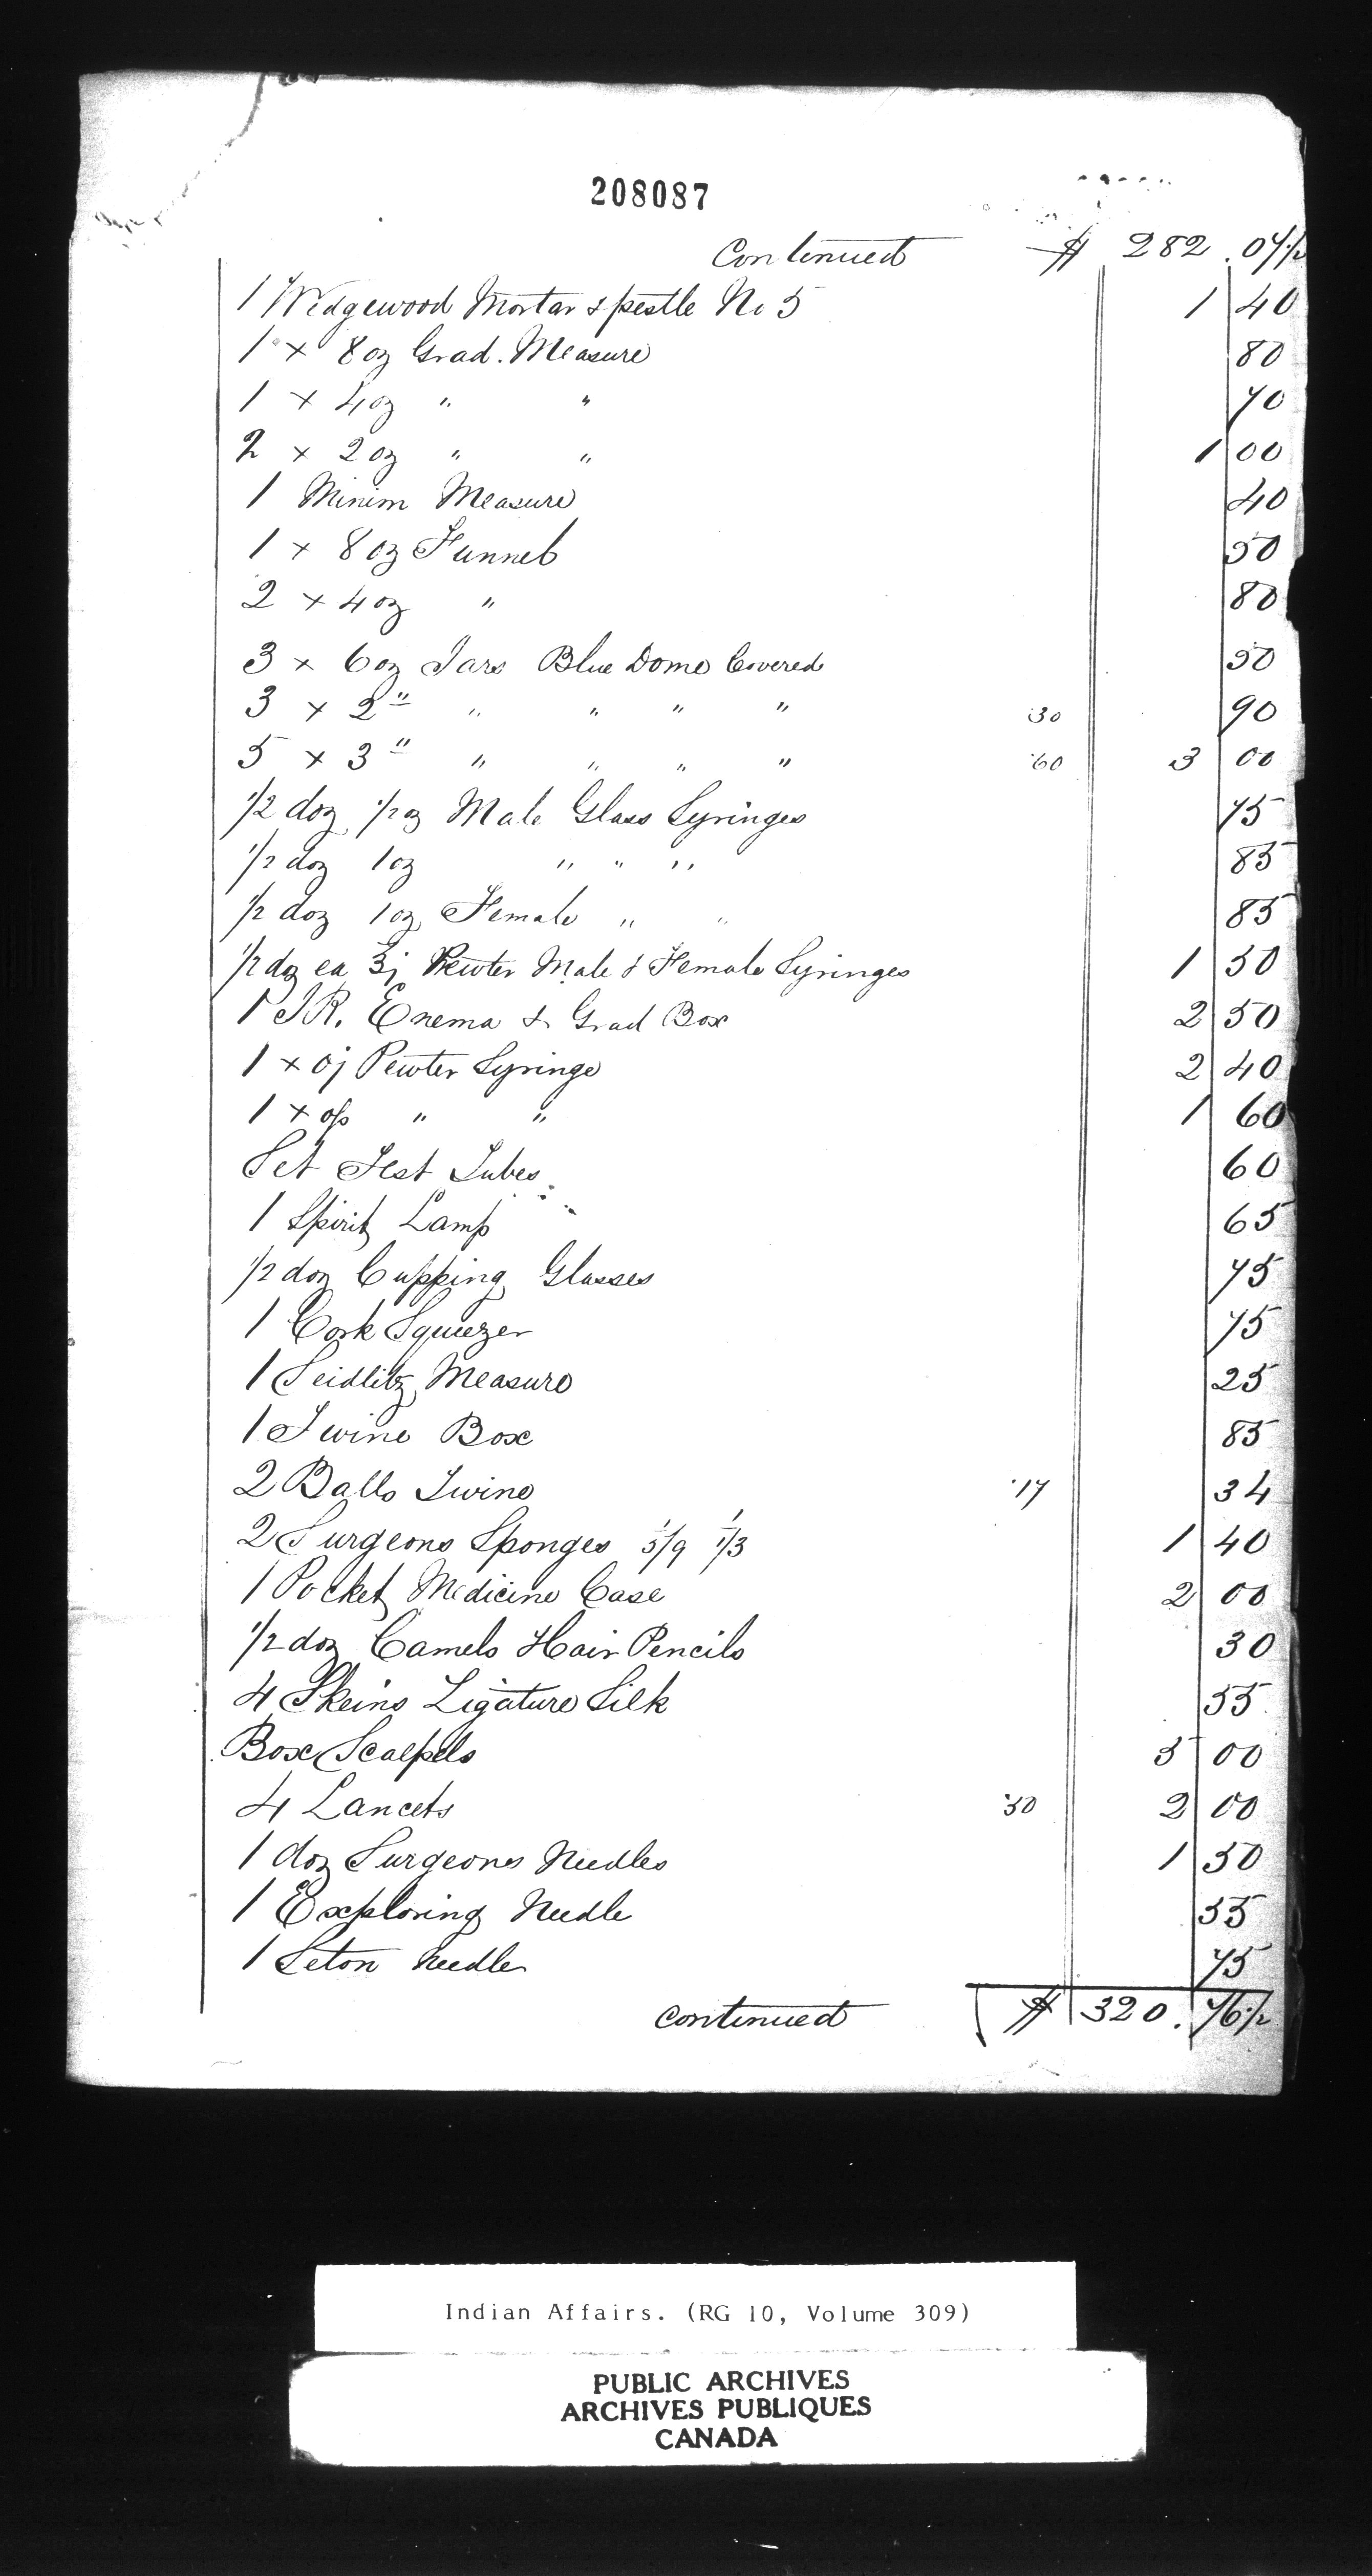 208087
Continued $ 282.07½
1 Wedgewood Mortar & pestle No 5 1 40
1 x 8 oz Grad. Measure 80
1 x 4 oz " " 70
2 x 2 oz " " 1 00
1 Minim Measure 40
1 x 8 oz Funnel 50
2 x 4 oz " 80
3 x 6 oz Jars Blue Dome Covered 50
3 x 2 " " " " " 30 90
5 x 3 " " " " " 60 3 00
1/2 doz 1/2 oz Male Glass Syringes 75
1/2 doz 1 oz " " " 85
1/2 doz 1 oz Female " " 85
1/2 doz ea ʒj Pewter Male & Female Syringes 1 50
1 I.R. Enema & Grad Box 2 50
1 x Oj Pewter Syringe 2 40
1 x O/s " " 1 60
Set Test Tubes 60
1 Spirit Lamp 65
1/2 doz Cupping Glasses 75
1 Cork Squeezer 75
1 Seidlitz Measure 25
1 Twine Box 85
2 Balls Twine 17 34
2 Surgeons Sponges 5/9 1/3 1 40
1 Pocket Medicine Case 2 00
1/2 doz Camels Hair Pencils 30
4 Skeins Ligature Silk 55
Box Scalpels 5 00
4 Lancets 50 2 00
1 doz Surgeons Needles 1 50
1 Exploring Needle 55
1 Seton Needle 75
continued $ 320.76½
Indian Affairs. (RG 10, Volume 309)
PUBLIC ARCHIVES
ARCHIVES PUBLIQUES
CANADA